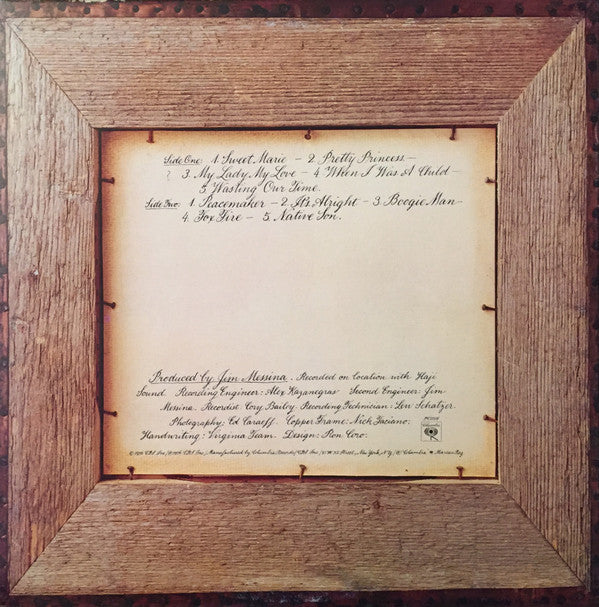 Side One: 1. Sweet Marie – 2. Pretty Princess –
3. My Lady, My Love – 4. When I Was A Child –
5. Wasting Our Time.
Side Two: 1. Peacemaker – 2. It's Alright – 3. Boogie Man –
4. Fox Fire – 5. Native Son.
Produced by Jim Messina. Recorded on location with Haji
Sound Recording Engineer: Alex Kazanegras Second Engineer: Jim
Messina. Recordist Cory Bailey Recording Technician: Len Schatzer.
Photography: Ed Caraeff. Copper Frame: Nick Fasciano:
Handwriting: Virginia Team. Design: Ron Coro:
CBS Inc./ CBS Inc./ Manufactured by Columbia Records/ CBS Inc./ 51 W. 52 Street, New York, N.Y./ Columbia Marcas Reg.
Columbia